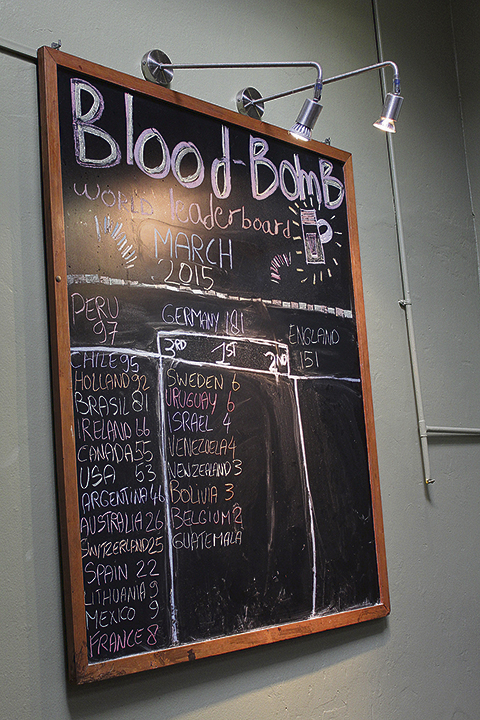 Blood-Bomb
WORLD leaderboard
MARCH
2015
PERU
97
GERMANY 181
ENGLAND
151
3RD 1ST 2ND
CHILE 95
HOLLAND 92
BRASIL 81
IRELAND 66
CANADA 55
USA 53
ARGENTINA 46
AUSTRALIA 26
SWITZERLAND 25
SPAIN 22
LITHUANIA 9
MEXICO 9
FRANCE 8
SWEDEN 6
URUGUAY 6
ISRAEL 4
VENEZUELA 4
NEWZEALAND 3
BOLIVIA 3
BELGIUM 2
GUATEMALA